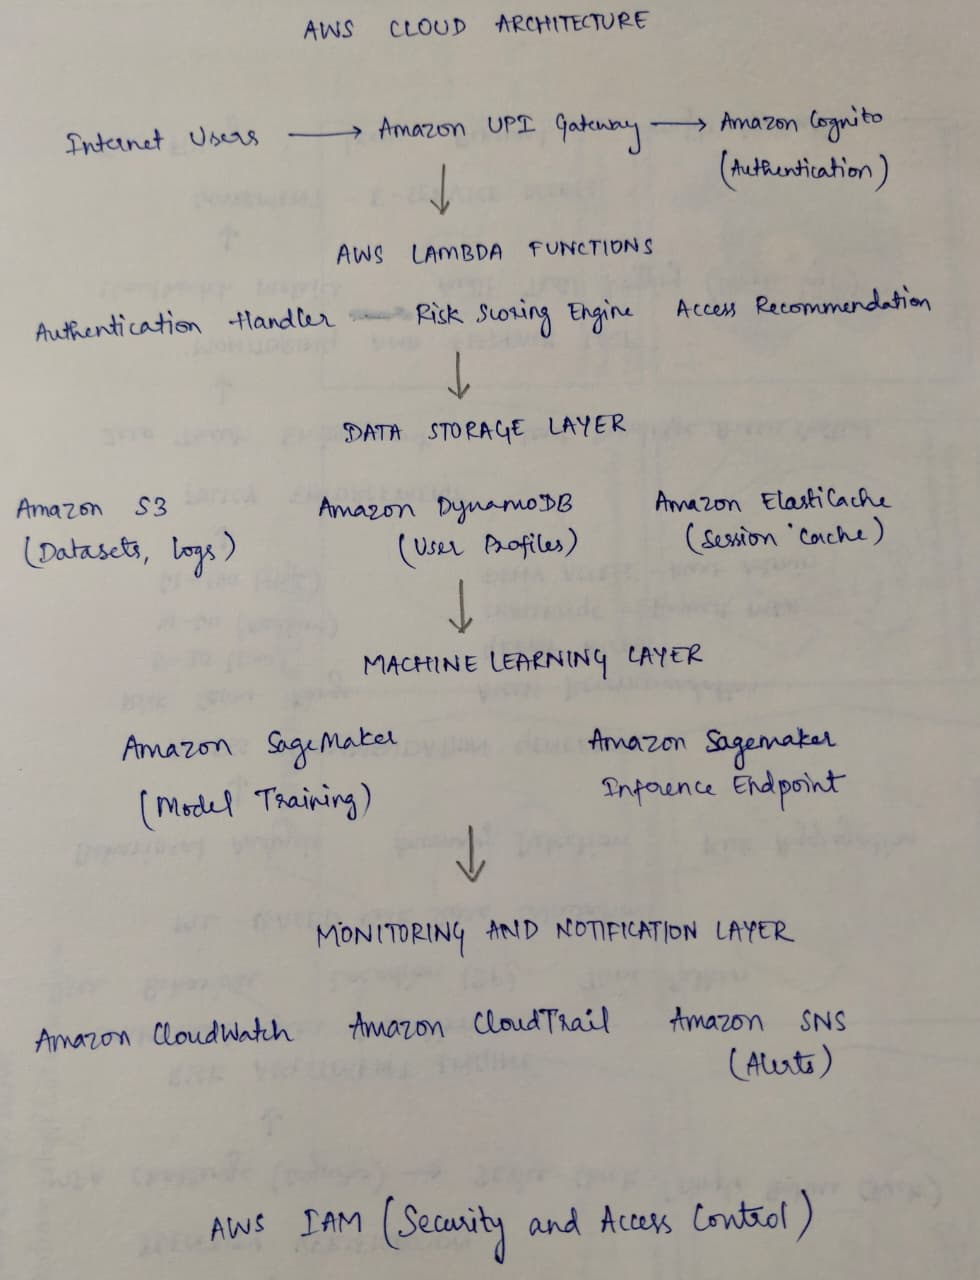 AWS CLOUD ARCHITECTURE
Internet Users → Amazon UPI Gateway → Amazon Cognito
(Authentication)
↓
AWS LAMBDA FUNCTIONS
Authentication Handler Risk Scoring Engine Access Recommendation
↓
DATA STORAGE LAYER
Amazon S3 Amazon DynamoDB Amazon ElastiCache
(Datasets, logs) (User Profiles) (Session Cache)
↓
MACHINE LEARNING LAYER
Amazon SageMaker Amazon Sagemaker
(Model Training) Inference Endpoint
↓
MONITORING AND NOTIFICATION LAYER
Amazon CloudWatch Amazon CloudTrail Amazon SNS
(Alerts)
AWS IAM (Security and Access Control)